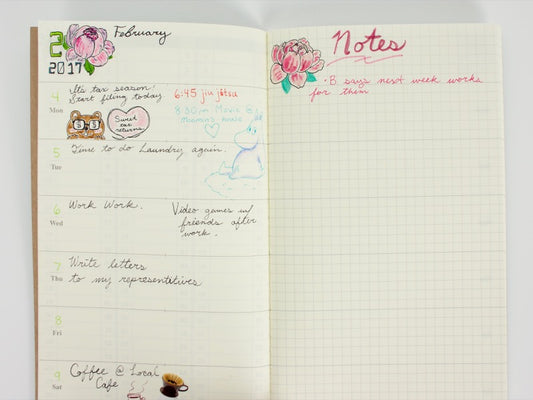 2
February
2017
4
Mon
Its tax season!
Start filing today
6:45 jiu jitsu
8:30pm Movie @
Sweet
tax
returns
5
Tue
Time to do Laundry again.
6
Wed
Work Work.
Video games w/
friends after
work.
7
Thu
Write letters
to my representitives
8
Fri
9
Sat
Coffee @ Local
Cafe
Notes
· B says next week works
for them